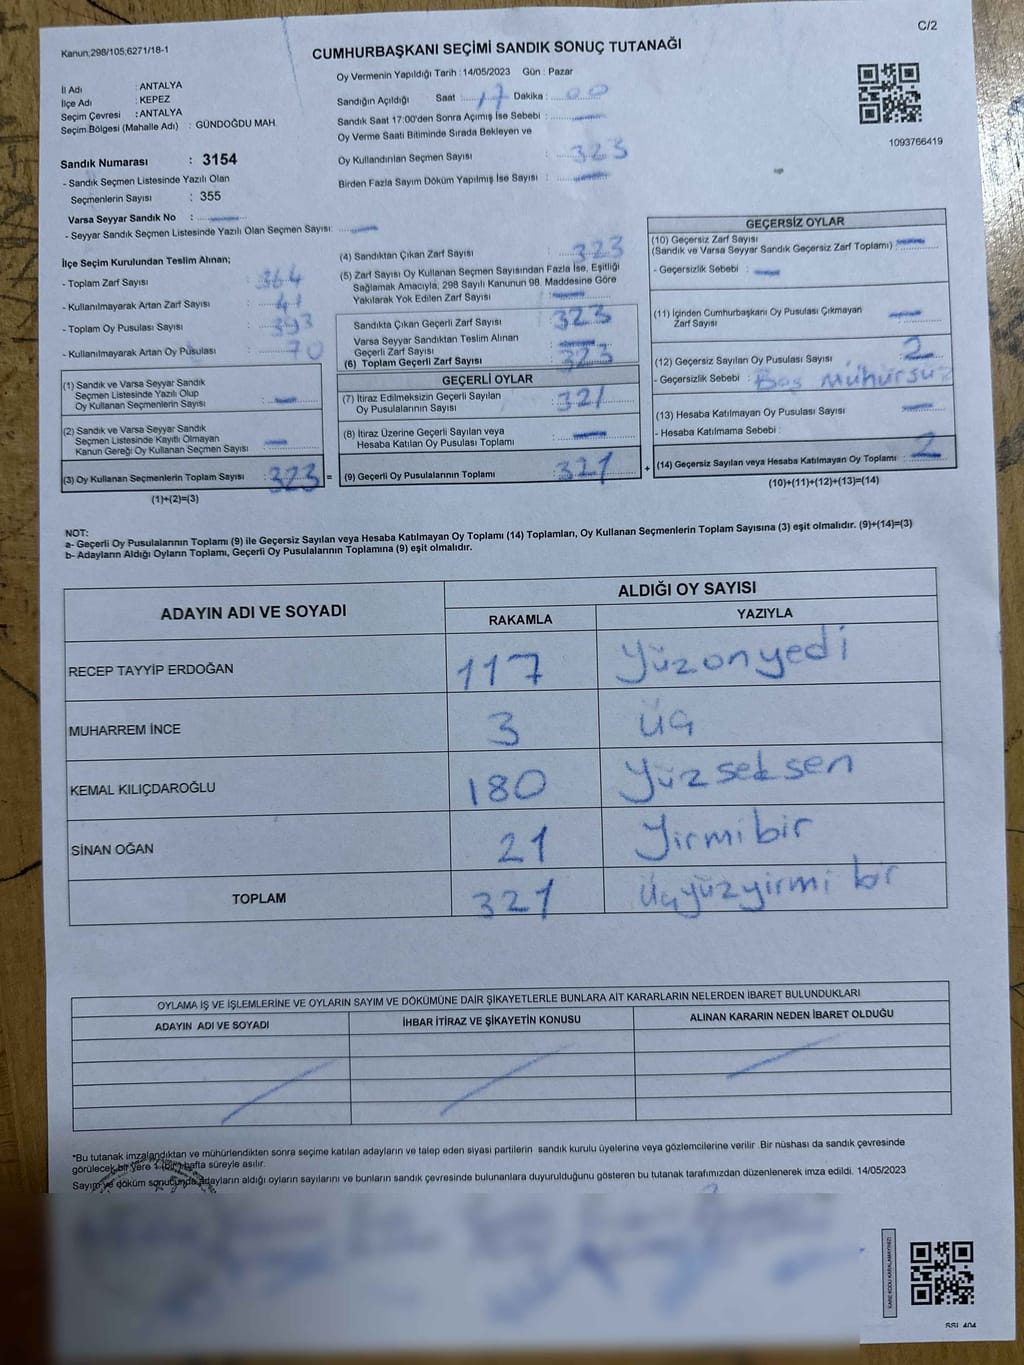 Kanun;298/105,6271/18-1
C/2
CUMHURBAŞKANI SEÇİMİ SANDIK SONUÇ TUTANAĞI
İl Adı : ANTALYA
İlçe Adı : KEPEZ
Seçim Çevresi : ANTALYA
Seçim Bölgesi (Mahalle Adı) : GÜNDOĞDU MAH.
Sandık Numarası : 3154
- Sandık Seçmen Listesinde Yazılı Olan
Seçmenlerin Sayısı : 355
Varsa Seyyar Sandık No :
- Seyyar Sandık Seçmen Listesinde Yazılı Olan Seçmen Sayısı:
Oy Vermenin Yapıldığı Tarih : 14/05/2023 Gün : Pazar
Sandığın Açıldığı Saat : 17 Dakika : 00
Sandık Saat 17:00'den Sonra Açımış İse Sebebi :
Oy Verme Saati Bitiminde Sırada Bekleyen ve
Oy Kullandırılan Seçmen Sayısı : 323
Birden Fazla Sayım Döküm Yapılmış İse Sayısı :
1093766419
İlçe Seçim Kurulundan Teslim Alınan;
- Toplam Zarf Sayısı : 364
- Kullanılmayarak Artan Zarf Sayısı : 41
- Toplam Oy Pusulası Sayısı : 393
- Kullanılmayarak Artan Oy Pusulası : 70
(1) Sandık ve Varsa Seyyar Sandık
Seçmen Listesinde Yazılı Olup
Oy Kullanan Seçmenlerin Sayısı :
(2) Sandık ve Varsa Seyyar Sandık
Seçmen Listesinde Kayıtlı Olmayan
Kanun Gereği Oy Kullanan Seçmen Sayısı :
(3) Oy Kullanan Seçmenlerin Toplam Sayısı : 323 =
(1)+(2)=(3)
(4) Sandıktan Çıkan Zarf Sayısı : 323
(5) Zarf Sayısı Oy Kullanan Seçmen Sayısından Fazla İse, Eşitliği
Sağlamak Amacıyla, 298 Sayılı Kanunun 98. Maddesine Göre
Yakılarak Yok Edilen Zarf Sayısı :
Sandıkta Çıkan Geçerli Zarf Sayısı : 323
Varsa Seyyar Sandıktan Teslim Alınan
Geçerli Zarf Sayısı
(6) Toplam Geçerli Zarf Sayısı : 323
GEÇERLİ OYLAR
(7) İtiraz Edilmeksizin Geçerli Sayılan
Oy Pusulalarının Sayısı : 321
(8) İtiraz Üzerine Geçerli Sayılan veya
Hesaba Katılan Oy Pusulası Toplamı :
(9) Geçerli Oy Pusulalarının Toplamı : 321 +
GEÇERSİZ OYLAR
(10) Geçersiz Zarf Sayısı
(Sandık ve Varsa Seyyar Sandık Geçersiz Zarf Toplamı) :
- Geçersizlik Sebebi :
(11) İçinden Cumhurbaşkanı Oy Pusulası Çıkmayan
Zarf Sayısı :
(12) Geçersiz Sayılan Oy Pusulası Sayısı : 2
- Geçersizlik Sebebi : Boş Mühürsüz
(13) Hesaba Katılmayan Oy Pusulası Sayısı :
- Hesaba Katılmama Sebebi :
(14) Geçersiz Sayılan veya Hesaba Katılmayan Oy Toplamı : 2
(10)+(11)+(12)+(13)=(14)
NOT:
a- Geçerli Oy Pusulalarının Toplamı (9) ile Geçersiz Sayılan veya Hesaba Katılmayan Oy Toplamı (14) Toplamları, Oy Kullanan Seçmenlerin Toplam Sayısına (3) eşit olmalıdır. (9)+(14)=(3)
b- Adayların Aldığı Oyların Toplamı, Geçerli Oy Pusulalarının Toplamına (9) eşit olmalıdır.
ADAYIN ADI VE SOYADI
ALDIĞI OY SAYISI
RAKAMLA YAZIYLA
RECEP TAYYİP ERDOĞAN 117 Yüzonyedi
MUHARREM İNCE 3 üç
KEMAL KILIÇDAROĞLU 180 Yüzseksen
SİNAN OĞAN 21 Yirmibir
TOPLAM 321 Üçyüzyirmi bir
OYLAMA İŞ VE İŞLEMLERİNE VE OYLARIN SAYIM VE DÖKÜMÜNE DAİR ŞİKAYETLERLE BUNLARA AİT KARARLARIN NELERDEN İBARET BULUNDUKLARI
ADAYIN ADI VE SOYADI İHBAR İTİRAZ VE ŞİKAYETİN KONUSU ALINAN KARARIN NEDEN İBARET OLDUĞU
*Bu tutanak imzalandıktan ve mühürlendikten sonra seçime katılan adayların ve talep eden siyasi partilerin sandık kurulu üyelerine veya gözlemcilerine verilir Bir nüshası da sandık çevresinde
görülecek bir yere 1 (Bir) hafta süreyle asılır.
Sayım ve döküm sonucunda adayların aldığı oyların sayılarını ve bunların sandık çevresinde bulunanlara duyurulduğunu gösteren bu tutanak tarafımızdan düzenlenerek imza edildi. 14/05/2023
KARE KODU KARALAMAYINIZ!